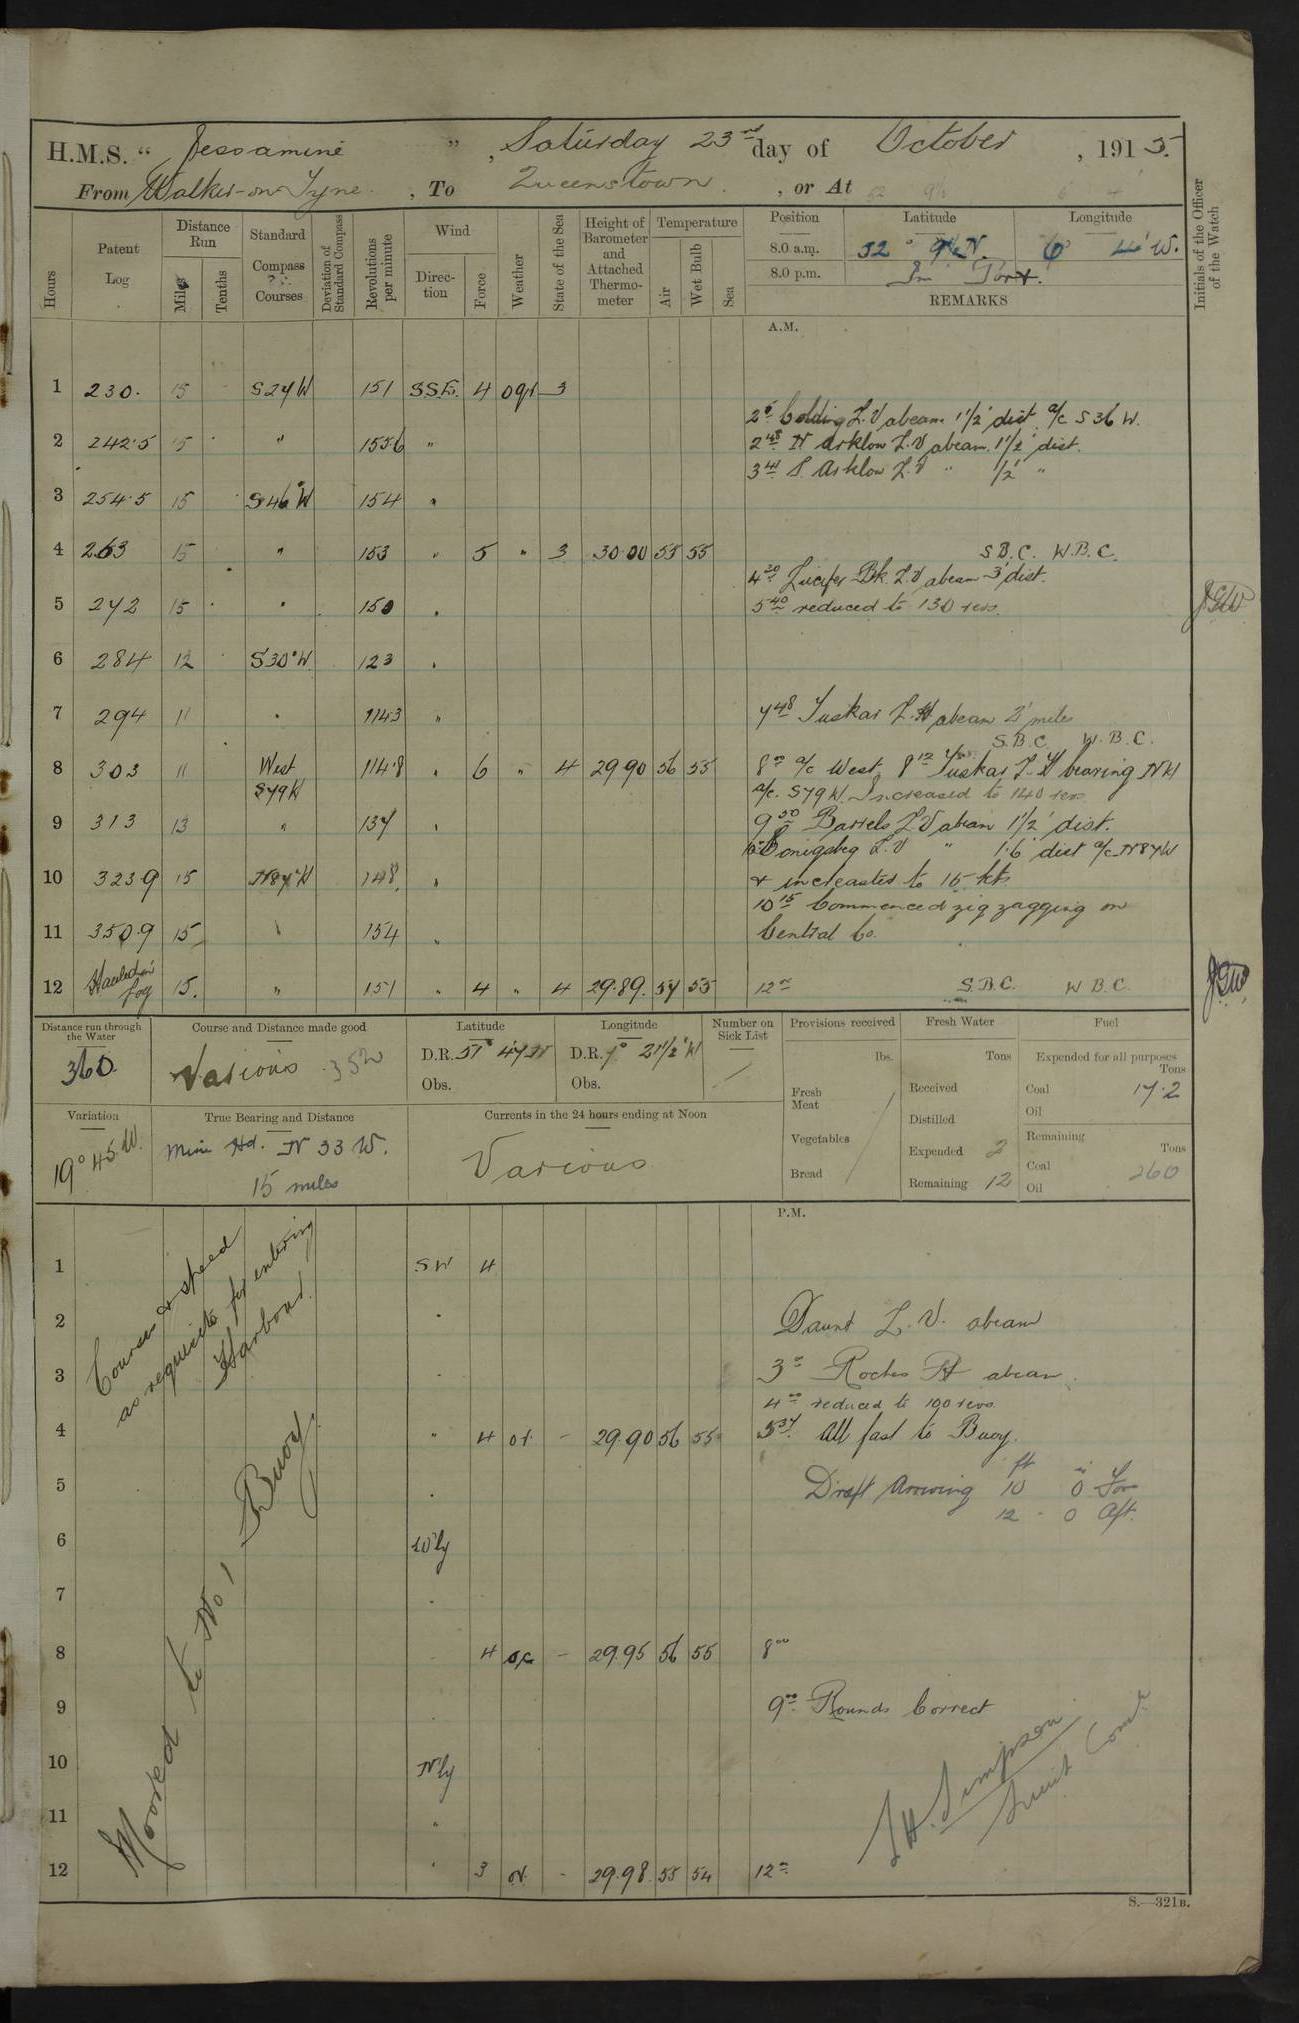 H.M.S. " Jessamine ", Saturday 23rd day of October, 1915.
From Walker-on-Tyne, To Queenstown, or At
Hours
Patent Log
Distance Run
Miles
Tenths
Standard Compass Courses
Deviation of Standard Compass
Revolutions per minute
Wind
Direction
Force
Weather
State of the Sea
Height of Barometer and Attached Thermometer
Temperature
Air
Wet Bulb
Sea
Position Latitude Longitude
8.0 a.m. 52° 9½ N. 6° 4' W.
8.0 p.m. In Port.
REMARKS
Initials of the Officer of the Watch
A.M.
1 230. 15 S24W 151 SSE. 4 3
a/c S36W.
2 242.5 15 " 155.6 "
2 48 N Arklow L.V abeam 1½' dist.
3 41 S. Arklow L.V " ½' "
3 254.5 15 S46°W 154 "
4 263 15 " 153 " 5 " 3 30.00 55 55 S.B.C. W.B.C.
4 30 Lucifer Bk. L.V abeam 3' dist.
5 272 15 " 150 "
5 40 reduced to 130 revs.
6 284 12 S30°W 123 "
7 294 11 " 114.3 "
7 48 Tuskar L.H abeam 2' miles
S.B.C. W.B.C.
8 303 11 West 114.8 " 6 " 4 29.90 56 55 8 00 a/c West. 8 12 Tuskar L.H bearing NW
S79W a/c. S79W. Increased to 140 revs
9 313 13 " 137 "
9 50 Barrels L.V abeam 1½' dist.
Conigsbeg L.V " 1.6' dist a/c N87W
10 323.9 15 N87°W 148 " & increased to 15 kts
10 15 Commenced zig zagging on
11 350.9 15 " 154 " Central Co.
12 Hauled in log 15. " 151 " 4 " 4 29.89. 57 55 12 00 S.B.C. W B C.
Distance run through the Water
360.
Course and Distance made good
Various 352
Latitude
D.R. 51° 47 N
Obs.
Longitude
D.R. 7° 21½' W
Obs.
Number on Sick List
Provisions received
lbs.
Fresh Meat
Vegetables
Bread
Fresh Water
Tons
Received
Distilled
Expended 2
Remaining 12
Fuel
Expended for all purposes
Tons
Coal 17.2
Oil
Remaining
Tons
Coal 260
Oil
Variation
19° 45' W.
True Bearing and Distance
Mine Hd. N 33 W.
15 miles
Currents in the 24 hours ending at Noon
Various
P.M.
Courses & speed
as requisite for entering
Harbour.
Moored to No 1 Buoy.
1 SW 4
2 " Daunt L.V. abeam
3 " 3 00 Roches Pt abeam.
4 00 reduced to 100 revs
4 " 4 - 29.90 56 55 5 37 All fast to Buoy.
ft in
5 " Draft Arriving 10 0 For
12 - 0 Aft.
6 W'ly
7 "
8 4 oc - 29.95 56 55 8 00
9 9 00 Rounds Correct
10 N'ly
11 "
12 " 3 - 29.98 55 54 12 00
Simpson
Lieut Comr
S.—321B.